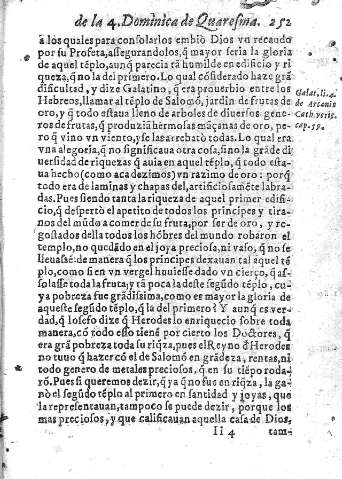 de la 4. Dominica de Quaresma. 252
à los quales para consolarlos embiò Dios vn recaudo
por su Profeta, assegurandolos, q̃ mayor seria la gloria
de aquel tẽplo, aunq̃ parecia tã humilde en edificio y ri
queza, q̃ no la del primero. Lo qual cõsiderado haze grã
dificultad, y dize Galatino, q̃ era prouerbio entre los
Hebreos, llamar al tẽplo de Salomõ, jardin de frutas de
oro, y q̃ todo estaua lleno de arboles de diuersos gene-
ros de frutas, q̃ produziã hermosas mãçanas de oro, pe-
ro q̃ vino vn viento, y se las arrebatò todas. Lo qual era
vna alegoria, q̃ no significaua otra cosa, sino la grãde di
uersidad de riquezas q̃ auia en aquel tẽplo, q̃ todo esta-
ua hecho (como acà dezimos) vn razimo de oro: porq̃
todo era de laminas y chapas del, artificiosamẽte labra-
das. Pues siendo tanta la riqueza de aquel primer edifi-
cio, q̃ despertò el apetito de todos los principes y tira-
nos del mũdo a comer de su fruta, por ser de oro, y re-
gostados della todos los hõbres del mundo robaron el
templo, no quedãdo en el joya preciosa, ni vaso, q̃ no se
lleuasse: de manera q̃ los principes dexauan tal aquel tẽ
plo, como si en vn vergel huuiesse dado vn cierço, q̃ as-
solasse toda la fruta; y tã poca la deste segũdo tẽplo, cu-
ya pobreza fue grãdissima, como es mayor la gloria de
aqueste segũdo tẽplo, q̃ la del primero? Y aunq̃ es ver-
dad, q̃ Iosefo dize q̃ Herodes lo enriquecio sobre toda
manera, cõ todo esso tienẽ por cierto los Doctores, q̃
era grã pobreza toda su riq̃za, pues el Rey no õ Herodes
no tuuo q̃ hazer cõ el de Salomõ en grãdeza, rentas, ni
todo genero de metales preciosos, q̃ en su tiẽpo roda-
rõ. Pues si queremos dezir, q̃ ya q̃ no fue en riq̃za, la ga-
nò el segũdo tẽplo al primero en santidad y joyas, que
la representauan, tampoco se puede dezir, porque los
mas preciosos, y que calificauan aquella casa de Dios,
Ii 4 tam-
Galat. li. 4.
de Arcanis
Cath. verit.
cap. 19.